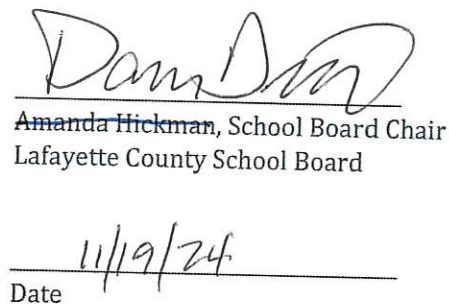 Amanda Hickman, School Board Chair
Lafayette County School Board
11/19/24
Date